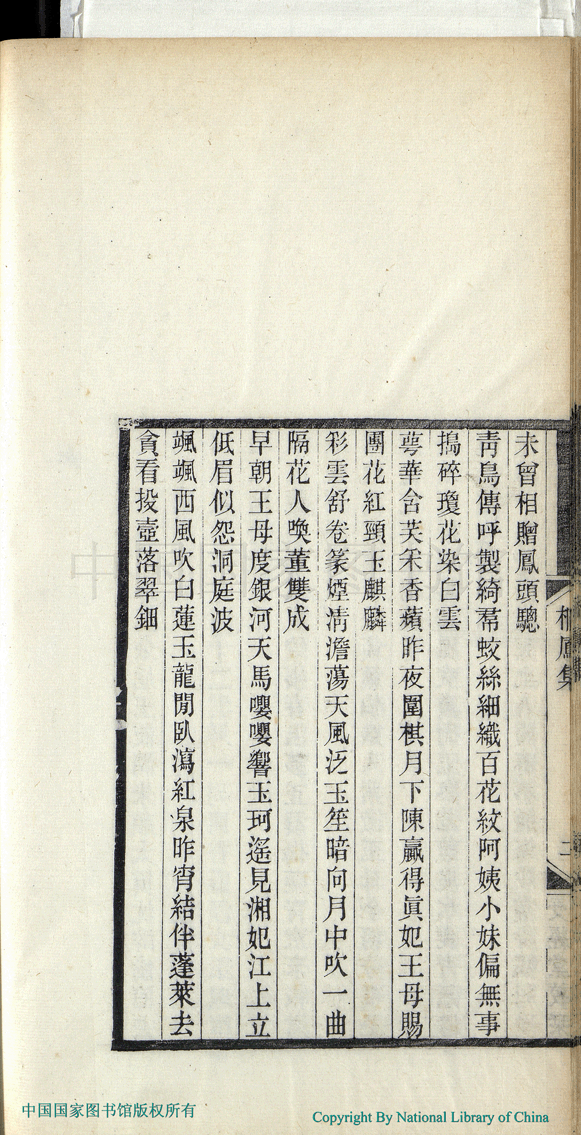 未曾相贈鳳頭驄
靑鳥傳呼製綺帬蛟絲細織百花紋阿姨小妹偏無事
搗碎瓊花染白雲
萼華舍芙采香蘋昨夜圍棋月下陳贏得眞妃王母賜
團花紅頸玉麒麟
彩雲舒卷篆煙淸澹蕩天風泛玉笙暗向月中吹一曲
隔花人喚董雙成
早朝王母度銀河天馬嚶嚶響玉珂遙見湘妃江上立
低眉似怨洞庭波
颯颯西風吹白蓮玉龍閒臥瀉紅泉昨宵結伴蓬萊去
貪看投壺落翠鈿
集
二
中国国家图书馆版权所有
Copyright By National Library of China